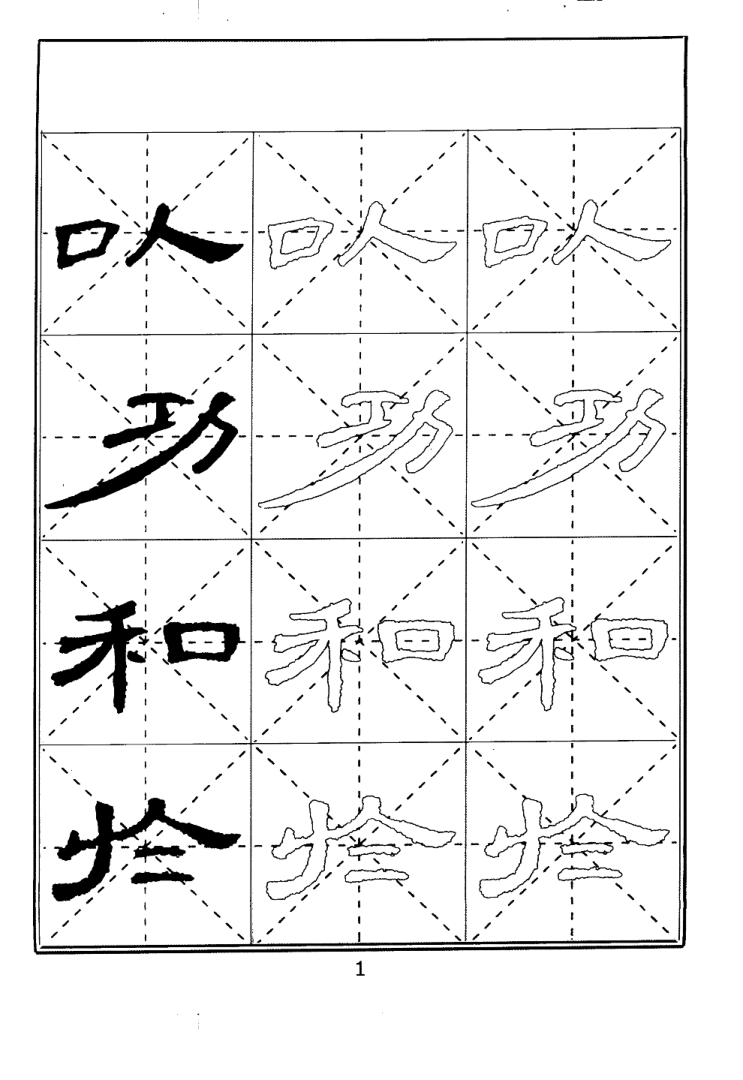 以 以 以
功 功 功
和 和 和
於 於 於
1